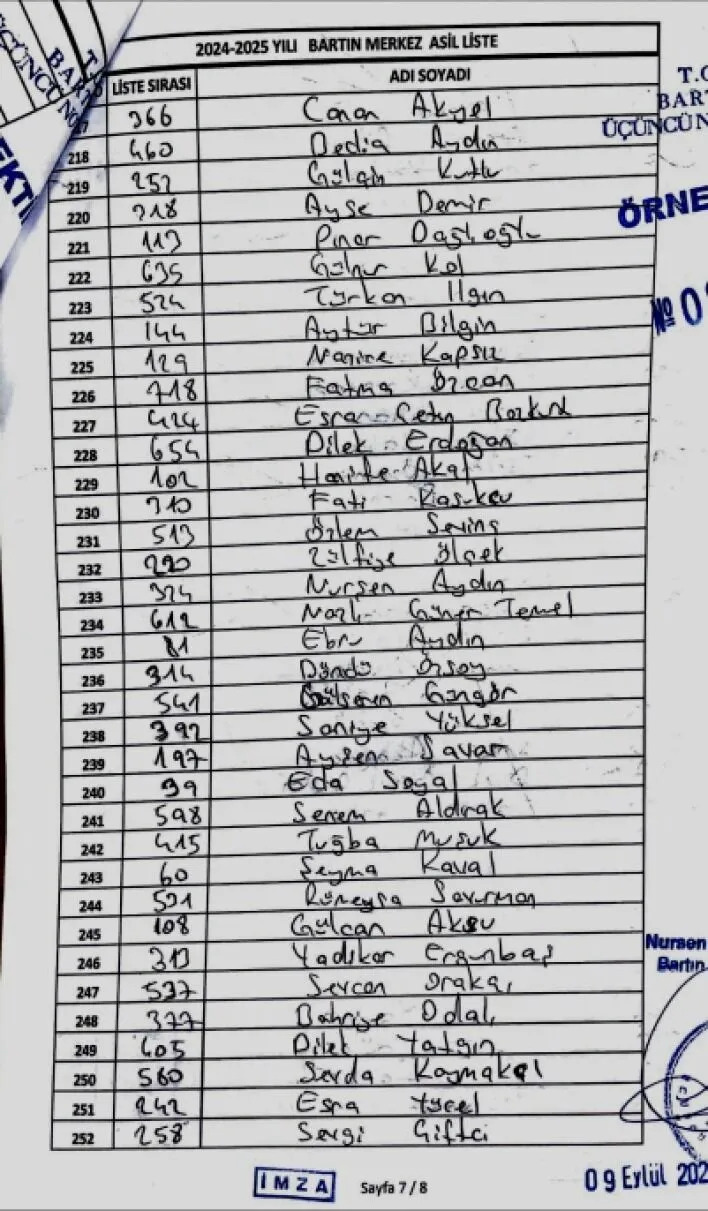 2024-2025 YILI BARTIN MERKEZ ASİL LİSTE
LİSTE SIRASI ADI SOYADI
366 Canan Akyel
218 460 Dedia Aydın
219 252 Gülçin Kutlu
220 318 Ayşe Demir
221 113 Pınar Dağlıoğlu
222 635 Gülnur Kol
223 524 Türkan Ilgın
224 144 Aytür Bilgin
225 129 Narine Kapsız
226 718 Fatma Özcan
227 424 Esra Çetin Bozkurt
228 654 Dilek Erdoğan
229 102 Akat
230 310 Fati
231 513 Özlem Sevinç
232 220 Zülfiye Ölçek
233 324 Nurşen Aydın
234 612 Nazlı Güner Temel
235 81 Ebru Aydın
236 314 Döndü Özsoy
237 541 Gülseren Güngör
238 392 Saniye Yüksel
239 197 Ayşen Savan
240 39 Eda Soyal
241 598 Senem Aldırak
242 415 Tuğba
243 60 Şeyma Kaval
244 521 Rümeysa Savurman
245 108 Gülcan Aksu
246 313 Yadikar Ergunbaş
247 537 Sevcan Orakçı
248 377 Bahriye Odalı
249 405 Dilek Yatgın
250 560 Sevda Kaymakçı
251 242 Esra Yücel
252 258 Sevgi Çiftci
İMZA Sayfa 7 / 8
T.C
BART
ÜÇÜNCÜ N
ÖRNE
№ 0
Nursen
Bartın
09 Eylül 202